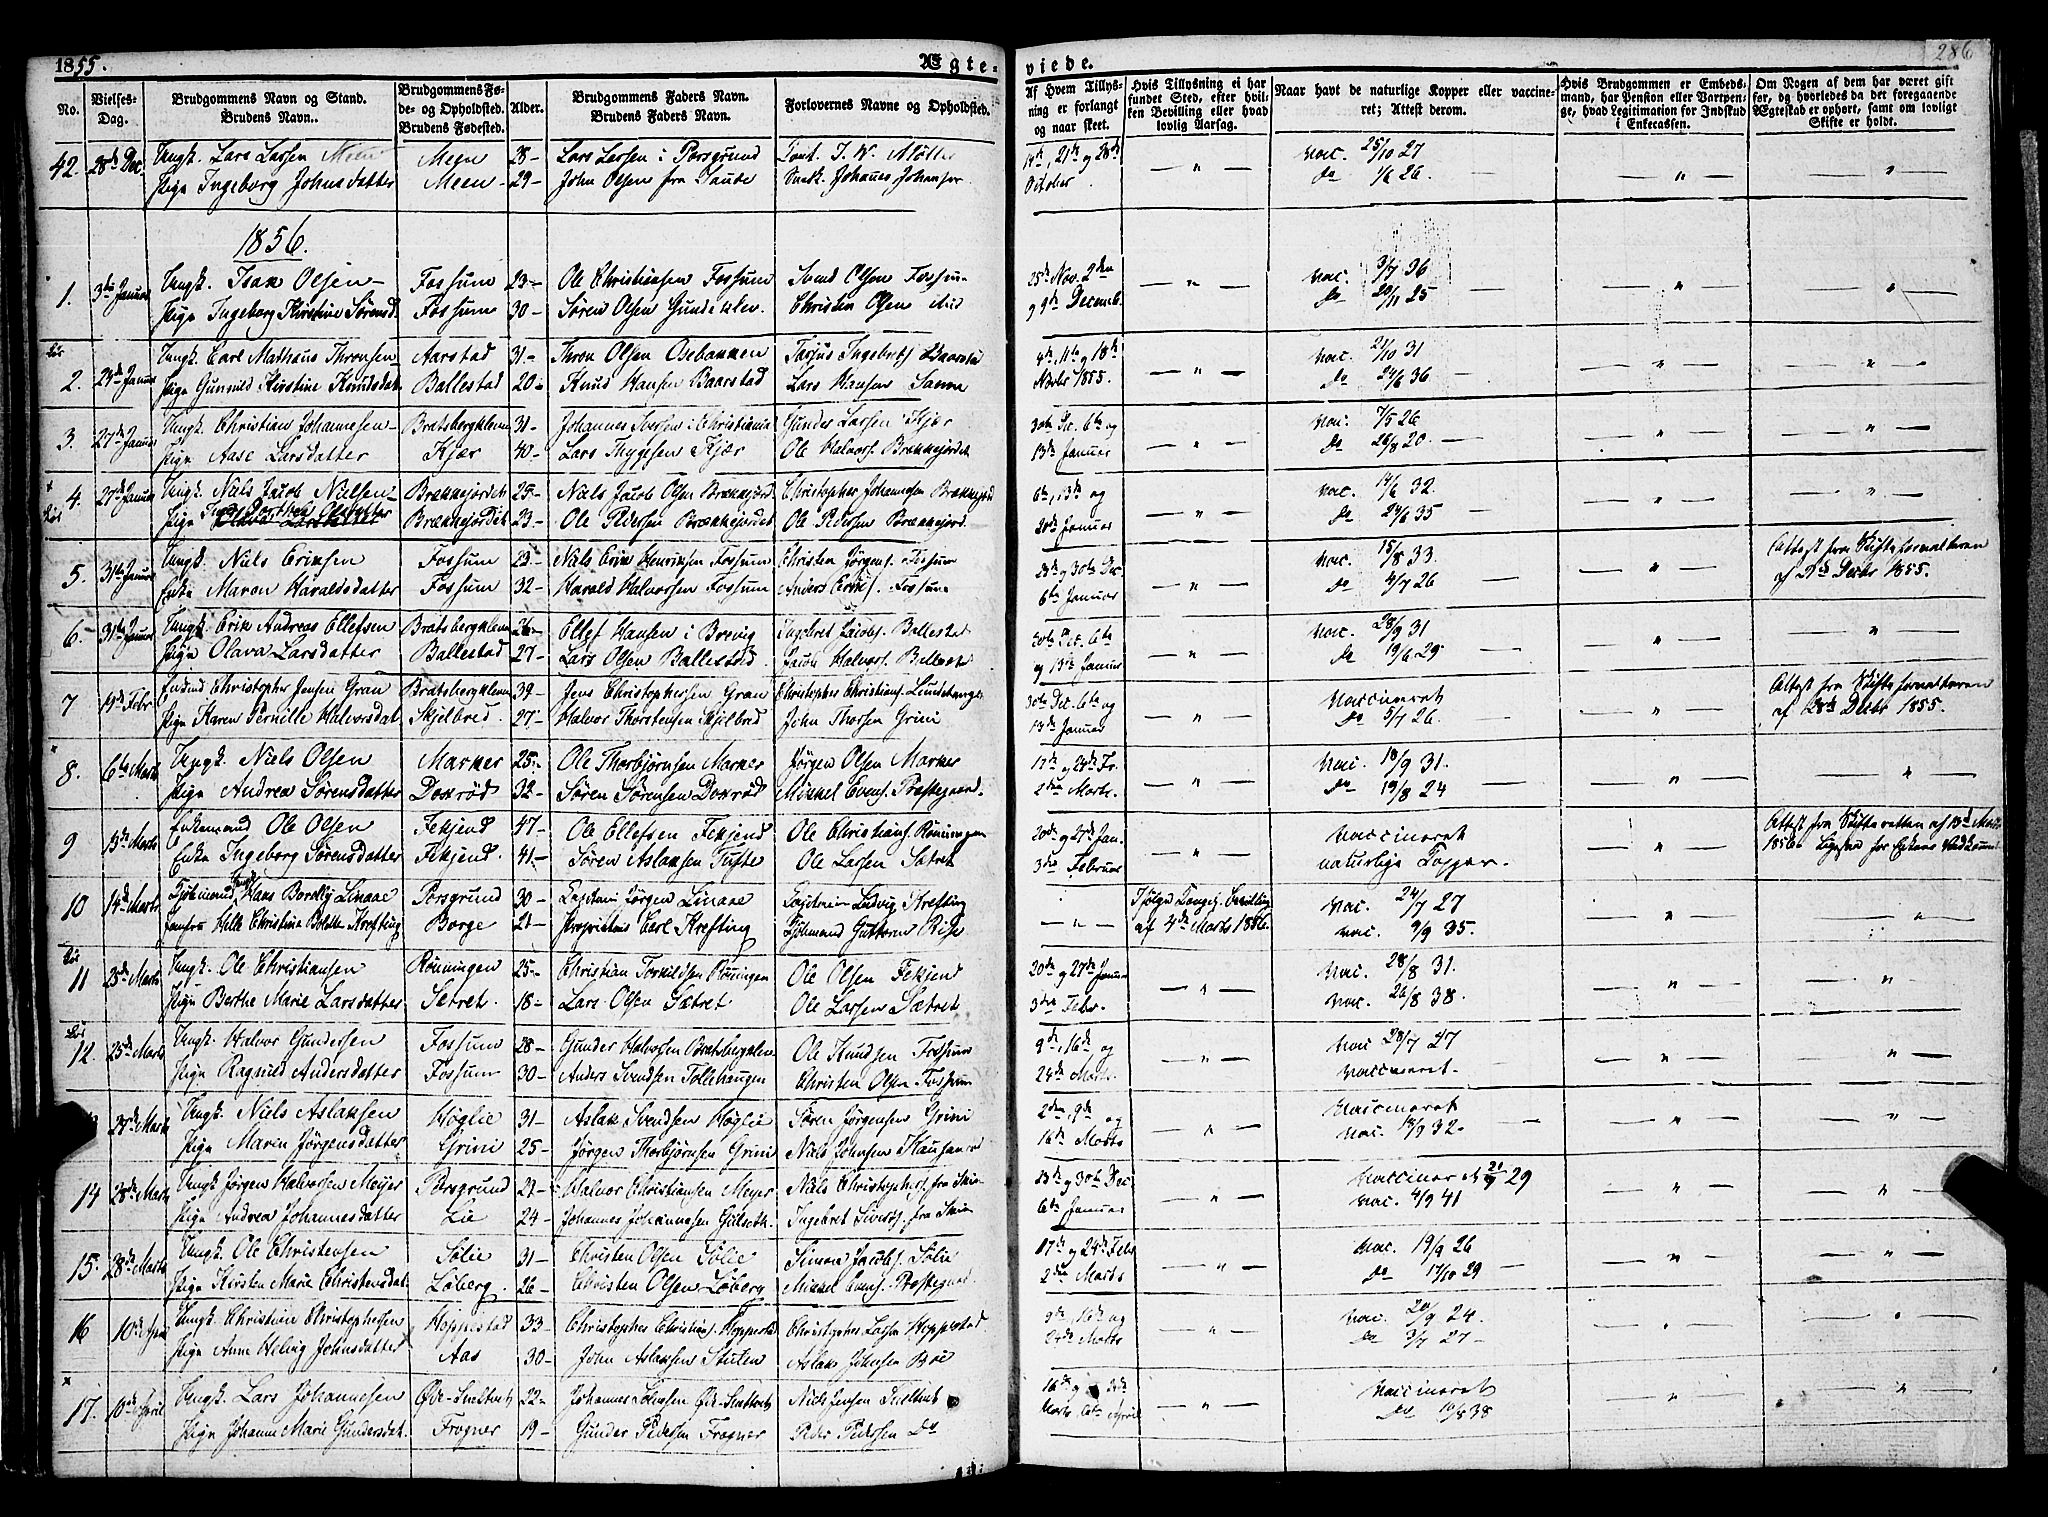 1855.
Ægte-
viede.
286
No.
Vielses-Dag.
Brudgommens Navn og Stand.
Brudens Navn.
Brudgommens Fø-
de- og Opholdsted.
Brudens Fødested.
Alder.
Brudgommens Faders Navn.
Brudens Faders Navn.
Forlovernes Navne og Opholdsted.
Af Hvem Tillys-
ning er forlangt
og naar skeet.
Hvis Tillysning ei har
fundet Sted, efter hvil-
ken Bevilling eller hvad
lovlig Aarsag.
Naar havt de naturlige Kopper eller vaccine-
ret; Attest derom.
Hvis Brudgommen er Embeds-
mand, har Pension eller Vartpen-
ge, hvad Legitimation for Indskud
i Enkecassen.
Om Nogen af dem har været gift
før, og hvorledes da det foregaaende
Ægteskab er ophørt, samt om lovligt
Skifte er holdt.
42. 28de Dec. Ungk. Lars Larsen Meen Meen 28- Lars Larsen i Porsgrund J. W. Møller 14de, 21de og 28de Vac. 25/10 27
Pige Ingeborg Johnsdatter Meen 29- John Olsen fra Saude Johannes Johansen October do 1/6 26
1856.
1. 3die Januar Ungk. Isak Olsen Fossum 23- Ole Christiansen Fossum Svend Olsen Fossum 25de Nov. 2den Vac. 3/7 36
Pige Ingeborg Kirstine Sørensd. Fossum 30- Søren Olsen Gundeklev Christen Olsen ibid og 9de Decemb. do 20/11 25
2. 24de Januar Ungk. Carl Mathæus Thronsen Aarstad 31- Thron Olsen Osebakken 4de, 11te og 18de Vac. 21/10 31
Pige Gunnild Kirstine Knudsdat. Ballestad 20- Knud Hansen Baarstad Lars Hansen Sanna Novbr 1855. do 24/6 36
3. 27de Januar Ungk. Christian Johannesen Bratsbergkleven 31- Johannes Iversen i Christiania Gunder Larsen Kjær 30te Dec. 6te og Vac. 7/5 26
Pige Aase Larsdatter Kjær 40- Lars Thygesen Kjær Ole Halvors. Brækkejordet 13de Januar do 26/8 20
4. 27de Januar Ungk. Niels Jacob Nielsen Brækkejordet 25- Niels Jacob Olsen Brækkejord. Christopher Johannesen Brækkejord 6te, 13de og Vac. 14/6 32.
Pige Brækkejordet 23- Ole Pedersen Brækkejordet Ole Pedersen Brækkejord. 20de Januar do 24/6 35
5. 31te Januar Ungk. Niels Eriksen Fossum 23- Niels Erik Henriksen Fossum Christen Jørgens. Fossum 23de og 30te Dec. Vac. 15/8 33. Attest fra Skifteforvalteren
Enke Maren Haraldsdatter Fossum 32- Harald Halvorsen Fossum Anders Eriks. Fossum 6te Januar do 4/7 26 Decbr 1855.
6. 31te Januar Ungk. Erik Andreas Ellefsen Bratsbergkleven 26- Ellef Hansen i Brevig Ingebret Jacobs. Ballestad 30te Dec. 6te Vac. 28/9 31
Pige Olava Larsdatter Ballestad 27- Lars Olsen Ballestad Jacob Halvors. og 13de Januar do 19/6 29
7 19de Febr. Enkemd Christopher Jensen Gran Bratsbergkleven 39- Jens Christophersen Gran Christopher Christians. Lundehaugen 30te Dec. 6te og Vaccineret Attest fra Skifteforvalteren
Pige Karen Pernille Halvorsdat. Skjelbred 27- Halvor Thorstensen Skjelbred John Thorsen Grini 13de Januar do 5/7 26. af 28de Decbr 1855.
8. 6te Marts Ungk. Niels Olsen Marker 25- Ole Thorbjørnsen Marker Jørgen Olsen Marker 17de og 24de Fr. Vac. 18/9 31.
Pige Andrea Sørensdatter Doxrød 32- Søren Sørensen Doxrød Mikkel Evens. Præstegaard. 2den Marts. do 19/8 24
9 13de Marts Enkemand Ole Olsen Fekjend 47- Ole Ellefsen Fekjend Ole Christians. Rønningen 20de og 27de Jan. Vaccineret Attest fra Skifteretten af 13de Marts
Enke Ingeborg Sørensdatter Fekjend. 41- Søren Aslaksen Tufte Ole Larsen Sætret 3die Februar naturlige Kopper 1856.
10 14de Marts Hans Bordby Linaae Porsgrund 30- Capitain Jørgen Linaae Capitain Ludvig Krefting Ifølge Kongel. Bevilling Vac. 24/7 27
Jomfru Christina Bolette Krefting Borge 21- Proprietær Carl Krefting Guttorm af 4de Marts 1856. Vac. 9/9 35.
11 25de Marts Ungk. Ole Christiansen Rønningen 25- Christian Torkildsen Rønningen Ole Olsen Fekjend 20de og 27de Januar Vac. 28/8 31.
Pige Berthe Marie Larsdatter Sætret. 18- Lars Olsen Sætret Ole Larsen Sætret 3die Febr. Vac. 26/8 38.
12. 25de Marts Ungk. Halvor Gundersen Fossum 28- Gunder Halvorsen Bratsbergklev Ole Knudsen Fossum 9de, 16de og Vac 28/7 27
Pige Ragnild Andersdatter Fossum 30- Anders Svendsen Tollehaugen Christen Olsen Fossum 24de Marts. Vaccineret.
27de Marts Ungk. Niels Aslaksen Høglie 31- Aslak Svendsen Høglie Søren Jørgensen Grini 2den, 9de og Vaccineret
Pige Maren Jørgensdatter Grini 25- Jørgen Thorbjørnsen Grini Niels Johnsen 16de Marts Vac. 18/9 32.
14 28de Marts Ungk. Jørgen Halvorsen Meyer Porsgrund 27- Halvor Christiansen Meyer Niels Christophers. fra Skien 23de og 30te Dec Vaccineret 29
Pige Andrea Johannesdatter Lie 24- Johannes Johannesen Gulseth Ingebret Sivers. fra Skien 6te Januar Vac. 4/9 41
15. 28de Marts Ungk. Ole Christensen Sølie 31- Christen Olsen Sølie Simon Jacobs. Sølie 17de og 24de Feb. Vac. 19/9 26
Pige Kirsten Marie Christensdat. Løberg. 26- Christen Olsen Løberg Mikkel Evens. Præstegaard 2den Marts do 17/10 29
16 10de April Ungk. Christian Christophersen Hoppestad 33- Christopher Christians. Hoppestad Christopher Larsen Hoppestad 9de, 16de og Vac. 20/9 24.
Pige Anne Helvig Johnsdatter Aas 30- John Aslaksen Stulen Aslak Johnsen Bøe 24de Marts do 3/7 27
17. 10de April Ungk. Lars Johannesen 22- Johannes Niels Jensen 16de og Vaccineret
Pige Johanne Marie Gundersdat. Frogner 19- Gunder Pedersen Frogner Peder Pedersen do Marts April do 10/8 38